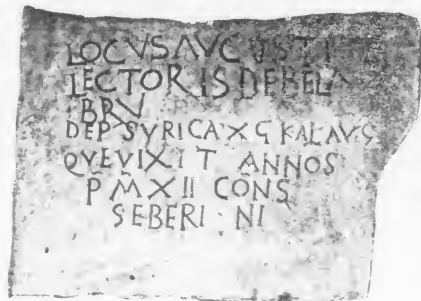 LOCVS AVGVSTI
LECTORIS DE BELA
BRV
DEP SVRICA X G KAL AVG
QVE VIXIT ANNOS
P M XII CONS
SEBERI NI